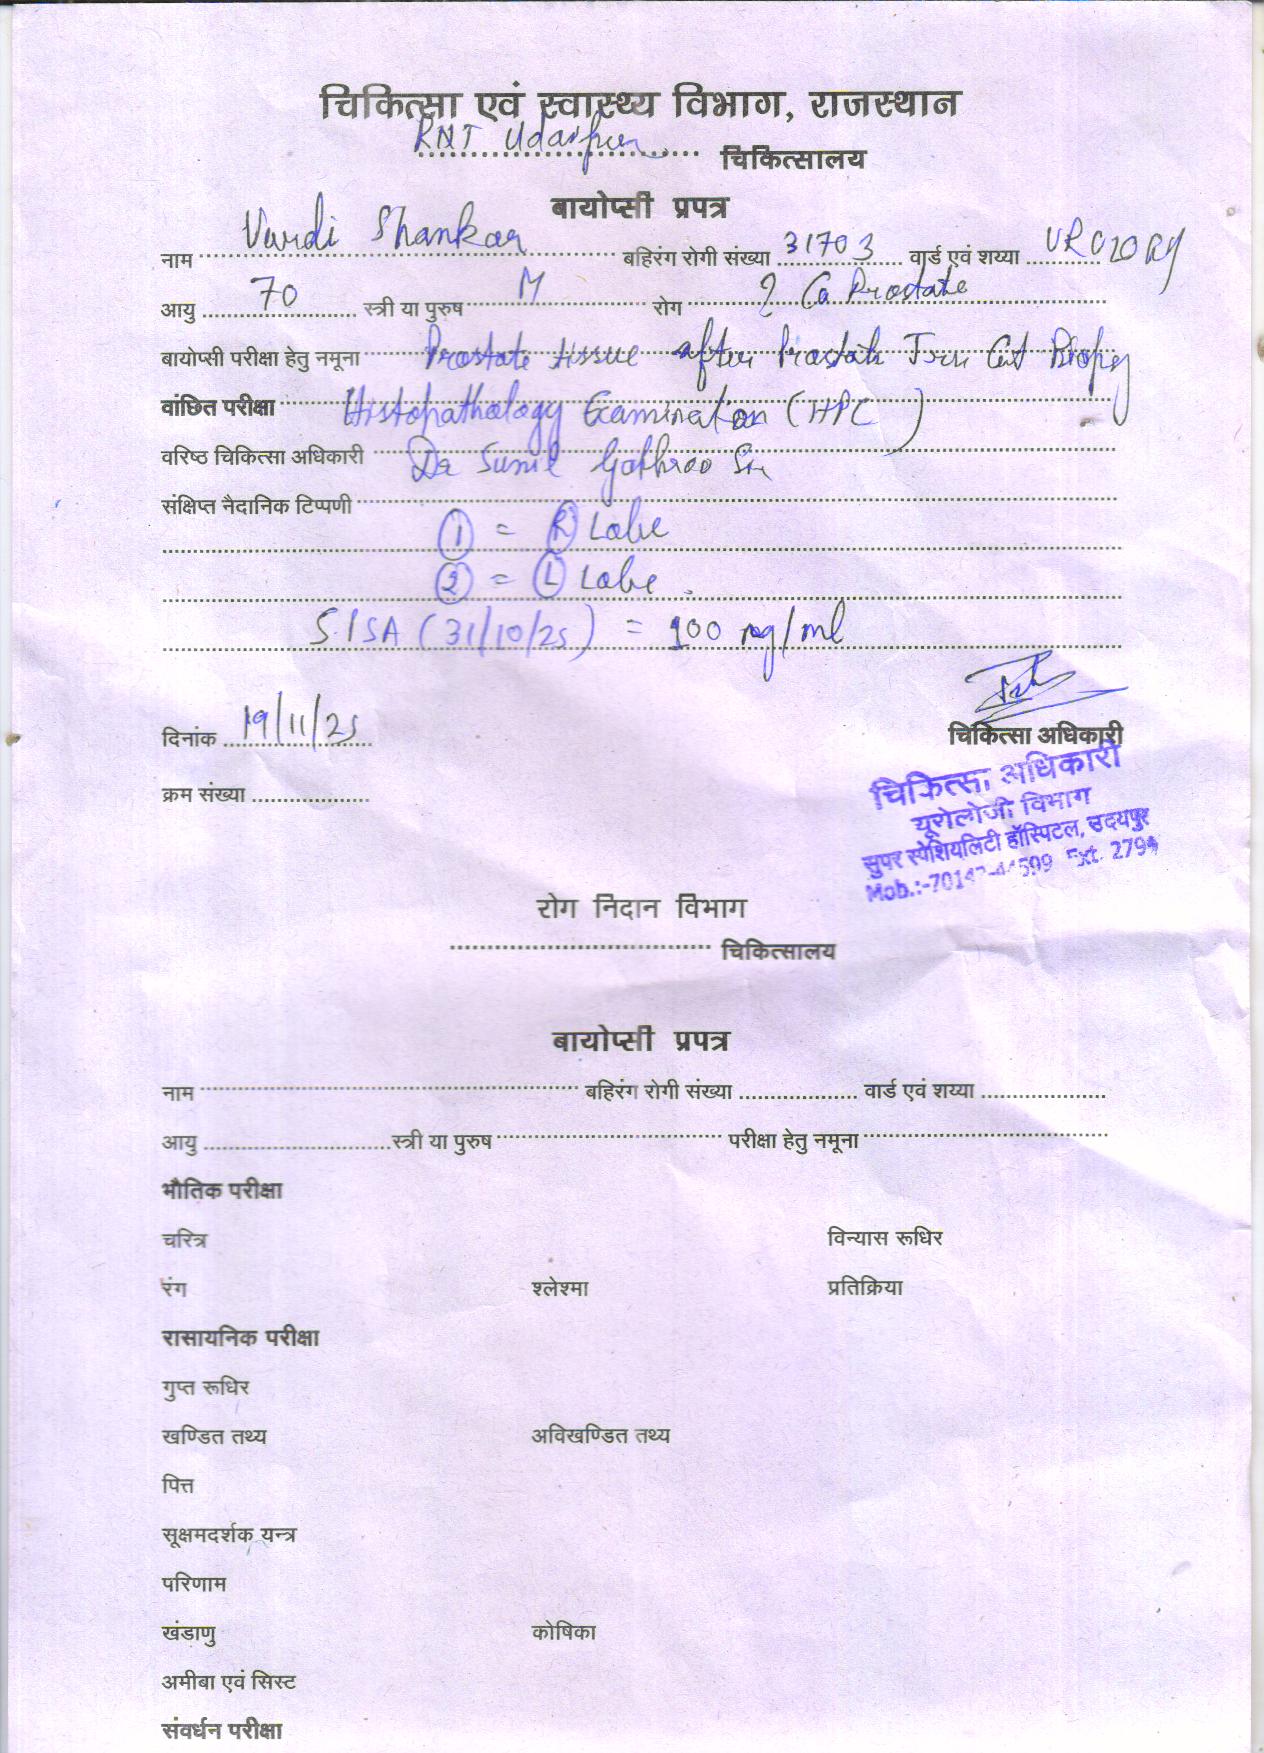 चिकित्सा एवं स्वास्थ्य विभाग, राजस्थान
RNT Udaipur चिकित्सालय
बायोप्सी प्रपत्र
नाम Vardi Shankar बहिरंग रोगी संख्या 31703 वार्ड एवं शय्या UROLOGY
आयु 70 स्त्री या पुरुष M रोग ? Ca Prostate
बायोप्सी परीक्षा हेतु नमूना Prostate tissue after Prostate Tru Cut Biopsy
वांछित परीक्षा Histopathology Examination (HPE)
वरिष्ठ चिकित्सा अधिकारी Dr Sunil Sir
संक्षिप्त नैदानिक टिप्पणी
① = Ⓡ Lobe
② = Ⓛ Lobe.
S.PSA (31/10/25) = 100 ng/ml
दिनांक 19/11/25
चिकित्सा अधिकारी
चिकित्सा अधिकारी
यूरोलोजी विभाग
सुपर स्पेशियलिटी हॉस्पिटल, उदयपुर
Mob.:- Ext.
क्रम संख्या
रोग निदान विभाग
चिकित्सालय
बायोप्सी प्रपत्र
नाम बहिरंग रोगी संख्या वार्ड एवं शय्या
आयु स्त्री या पुरुष परीक्षा हेतु नमूना
भौतिक परीक्षा
चरित्र विन्यास रूधिर
रंग श्लेश्मा प्रतिक्रिया
रासायनिक परीक्षा
गुप्त रूधिर
खण्डित तथ्य अविखण्डित तथ्य
पित्त
सूक्षमदर्शक यन्त्र
परिणाम
खंडाणु कोषिका
अमीबा एवं सिस्ट
संवर्धन परीक्षा